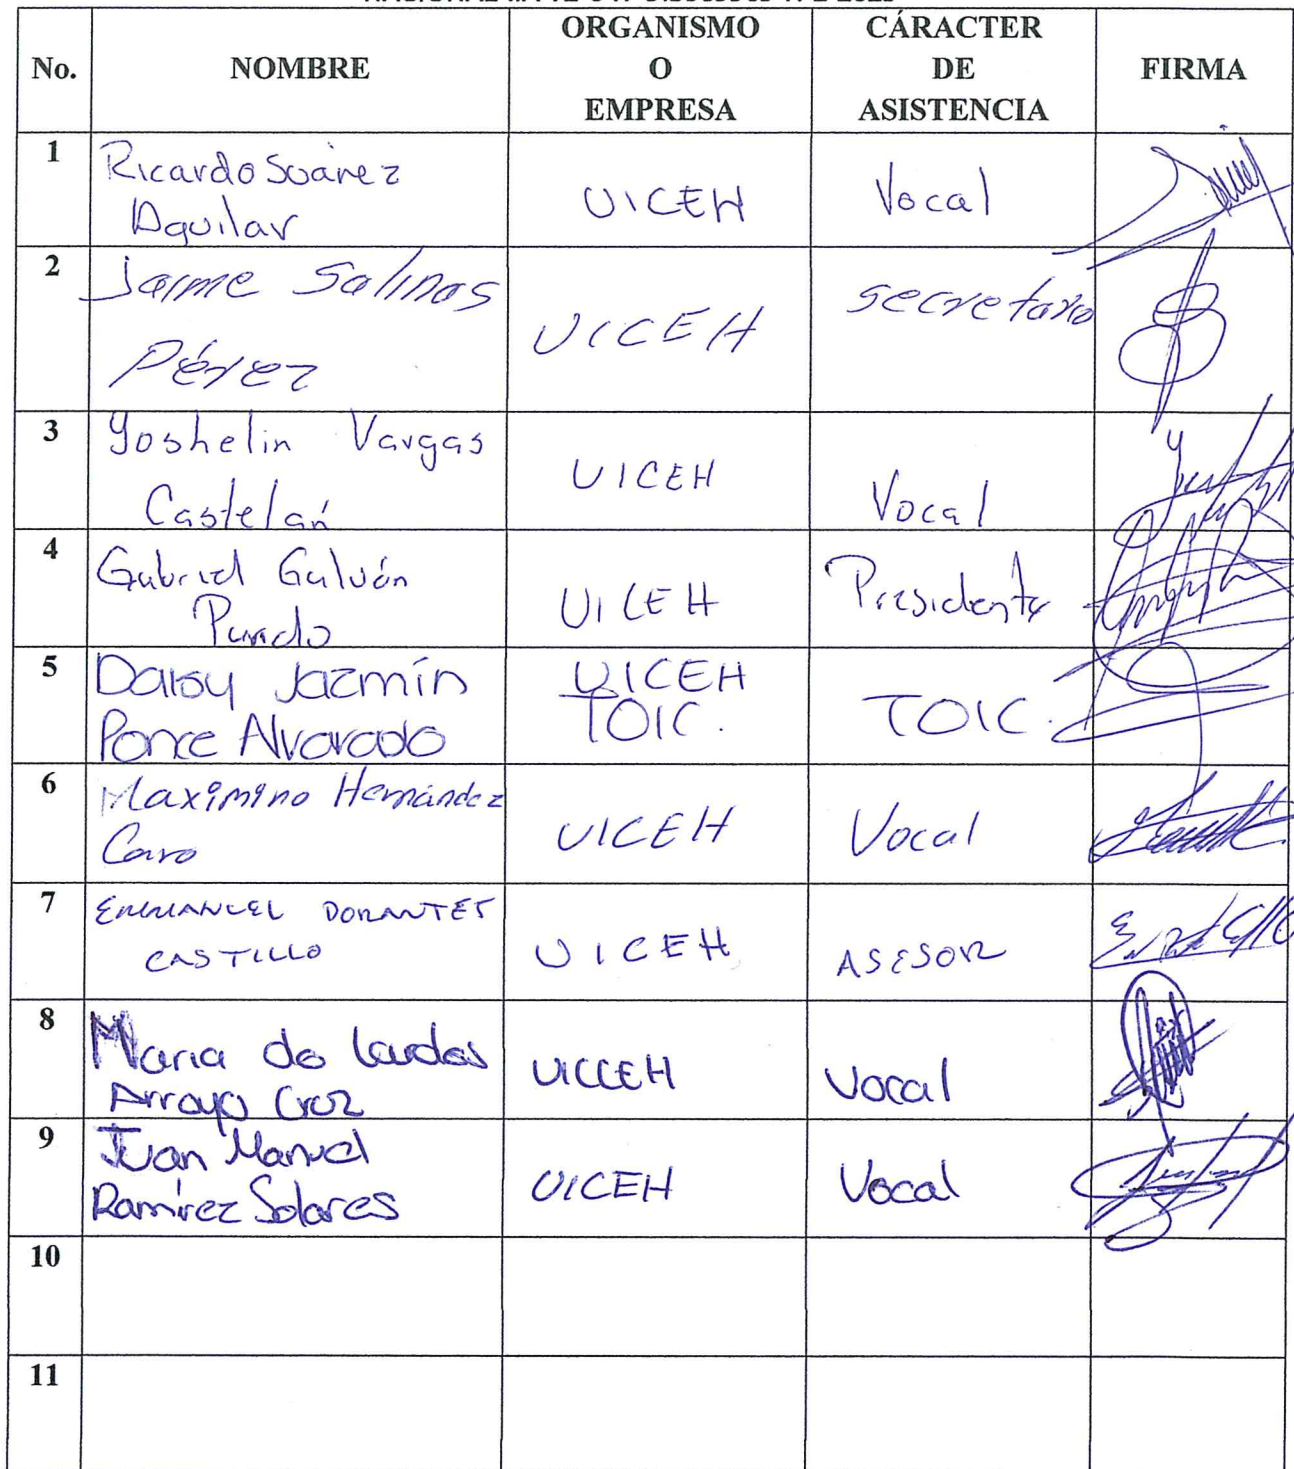 No.
NOMBRE
ORGANISMO
O
EMPRESA
CÁRACTER
DE
ASISTENCIA
FIRMA
1
Ricardo Suárez
Aguilar
UICEH
Vocal
2
Jaime Salinas
Pérez
UICEH
secretario
3
Yoshelin Vargas
Castelán
UICEH
Vocal
4
Gabriel Galván
Pardo
UICEH
Presidente
5
Daisy Jazmín
Ponce Alvarado
UICEH
TOIC.
TOIC.
6
Maximino Hernández
Caro
UICEH
Vocal
7
EMMANUEL DORANTES
CASTILLO
UICEH
ASESOR
8
Maria de
Arroyo Cruz
UICCEH
Vocal
9
Juan Manuel
Ramírez Solares
UICEH
Vocal
10
11